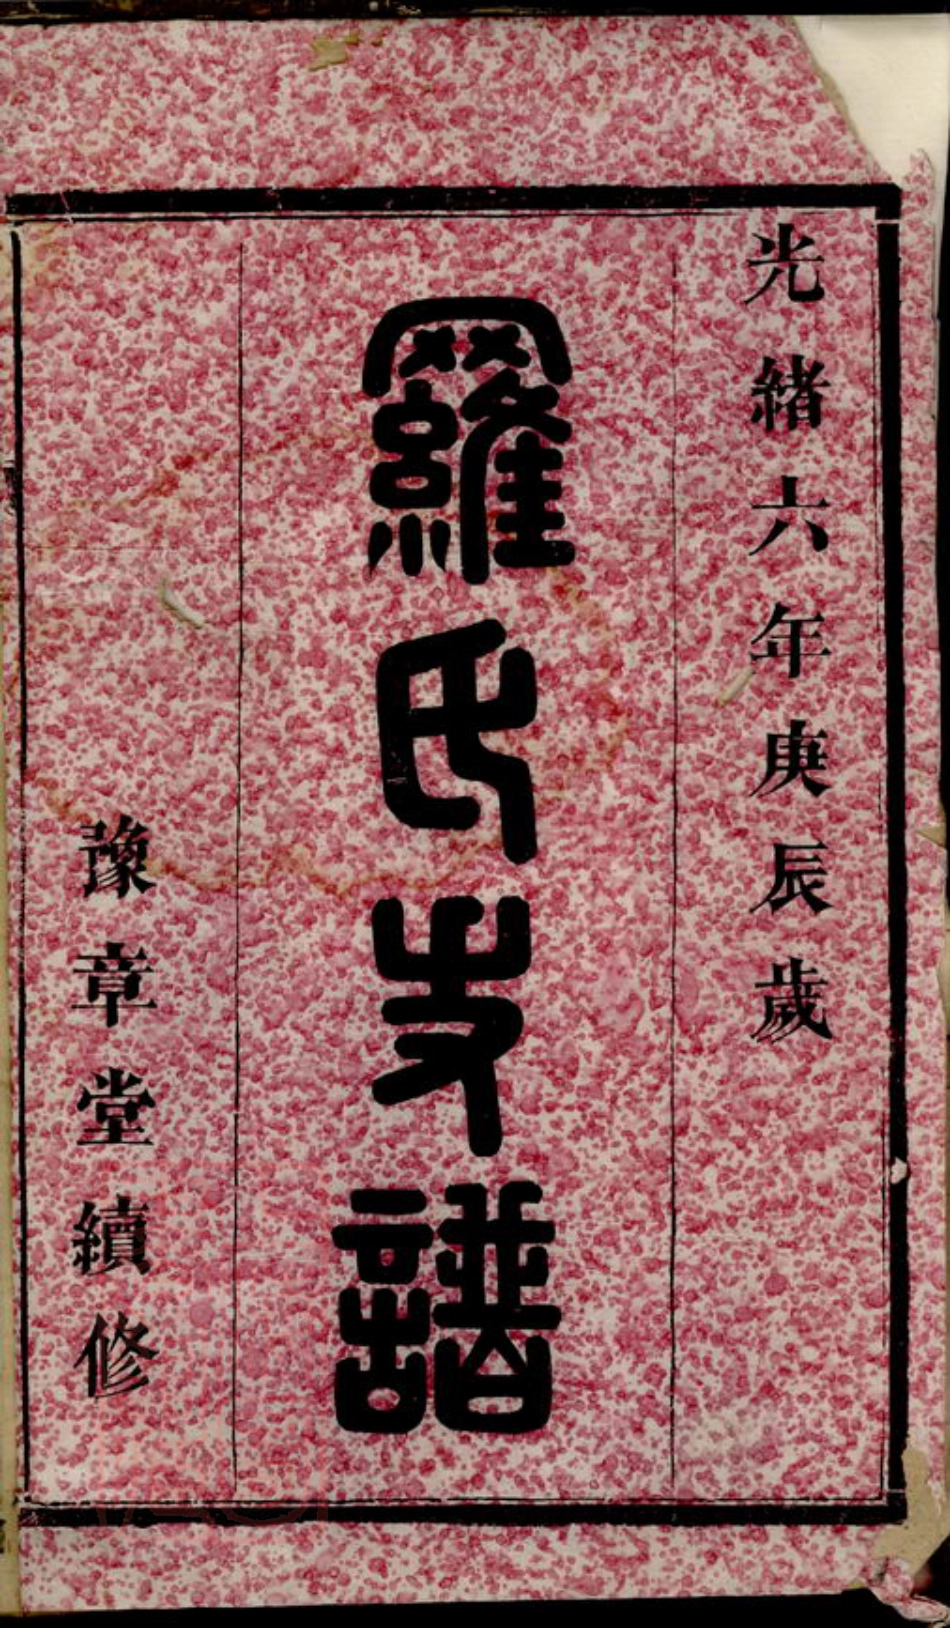 光緒六年庚辰歲
羅氏支譜
豫章堂續修